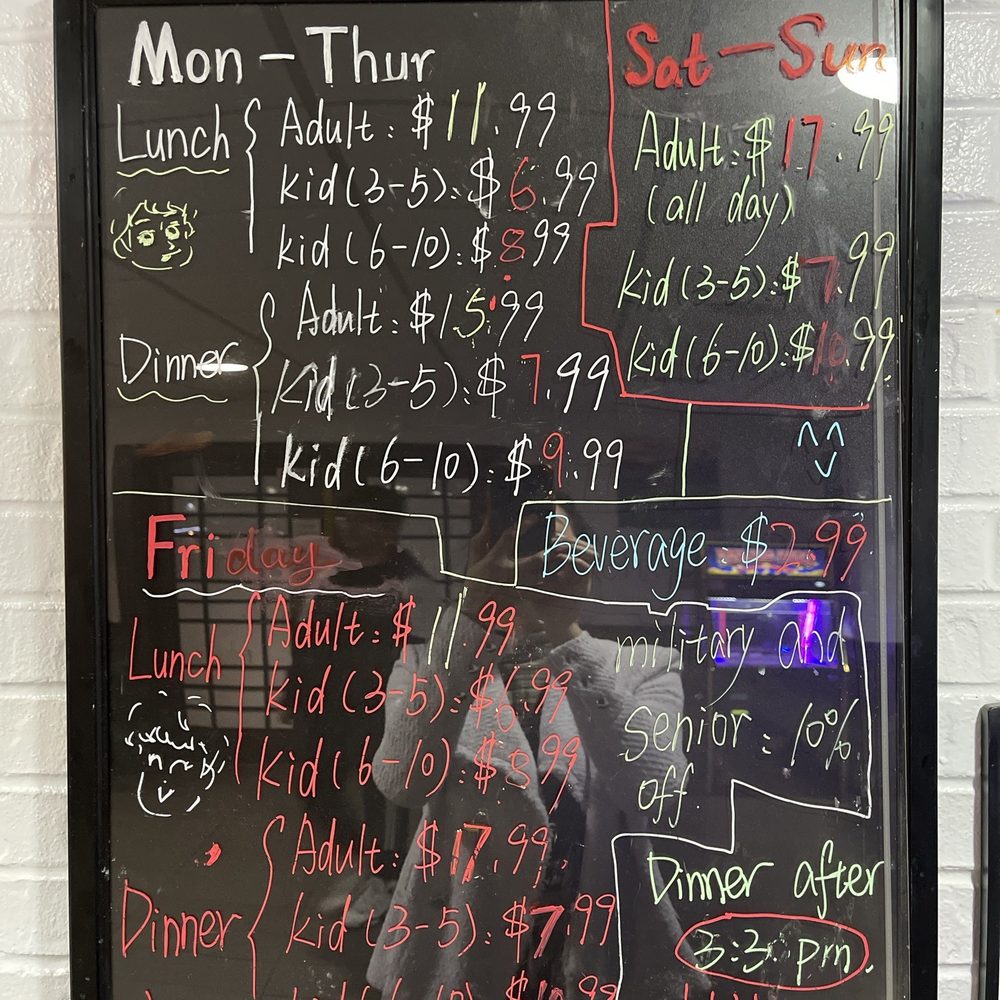 Mon - Thur
Lunch
Adult: $11.99
kid (3-5): $6.99
kid (6-10): $8.99
Dinner
Adult: $15.99
kid (3-5): $7.99
kid (6-10): $9.99
Sat - Sun
Adult: $17.99
(all day)
kid (3-5): $7.99
kid (6-10): $10.99
Beverage: $2.99
military and
senior: 10%
off.
Friday
Lunch
Adult: $11.99
kid (3-5): $6.99
kid (6-10): $8.99
Dinner
Adult: $17.99
kid (3-5): $7.99
kid (6-10): $10.99
Dinner after
3:3 pm.